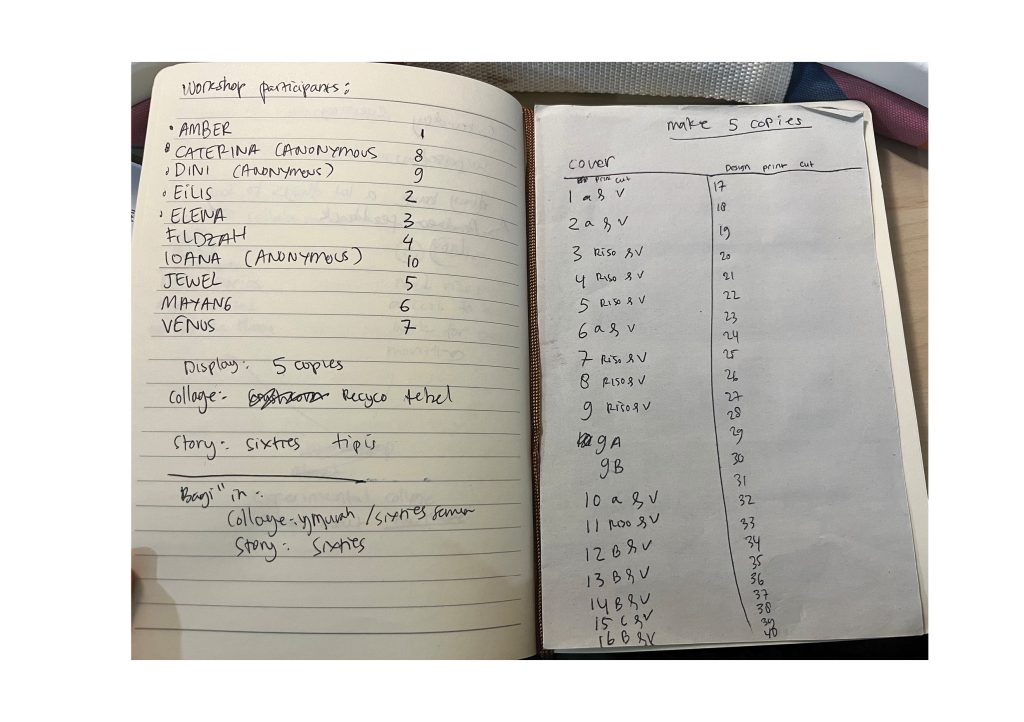 Workshop participants:
• AMBER 1
• CATERINA (ANONYMOUS 8
• DINI (ANONYMOUS) 9
• EILIS 2
• ELENA 3
FILDZAH 4
IOANA (ANONYMOUS) 10
JEWEL 5
MAYANG 6
VENUS 7
Display: 5 copies
Collage: Recyco tebel
Story: sixtres tipis
Bagi" in:
Collage: /sixties
Story: sixties
make 5 copies
cover
Design print cut
print cut
1 a & V
2 a & V
3 Riso & V
4 Riso & V
5 Riso & V
6 a & V
7 Riso & V
8 RISO & V
9 RISO & V
9A
9B
10 a & V
11 Riso & V
12 B & V
13 B & V
14 B & V
15 C & V
16 B & V
17
18
19
20
21
22
23
24
25
26
27
28
29
30
31
32
33
34
35
36
37
38
39
40